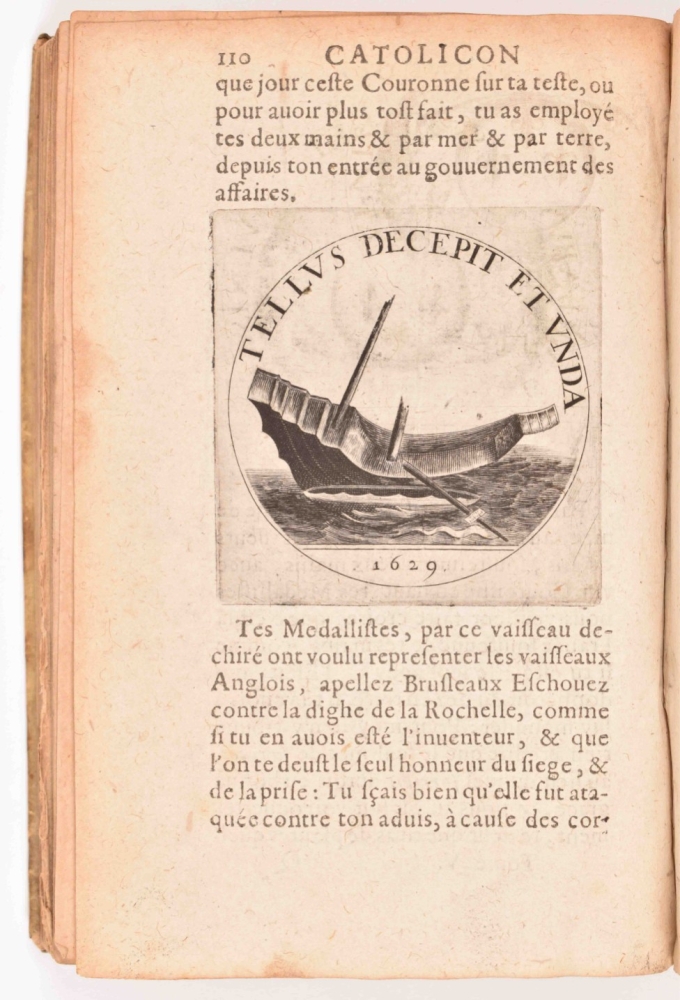 110 CATOLICON
que jour ceſte Couronne ſur ta teſte, ou
pour auoir plus toſt fait, tu as employé
tes deux mains & par mer & par terre,
depuis ton entrée au gouuernement des
affaires.
TELLVS DECEPIT ET VNDA
1629
Tes Medalliſtes, par ce vaiſſeau de-
chiré ont voulu repreſenter les vaiſſeaux
Anglois, apellez Bruſleaux Eſchouez
contre la dighe de la Rochelle, comme
ſi tu en auois eſté l'inuenteur, & que
l'on te deuſt le ſeul honneur du ſiege, &
de la priſe : Tu ſçais bien qu'elle fut ata-
quée contre ton aduis, à cauſe des cor-